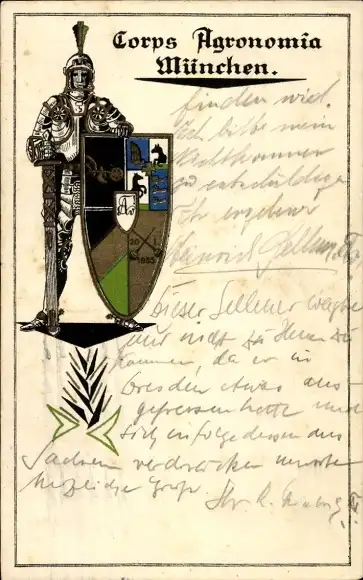 Corps Agronomia
München.
finden wird.
Ich bitte mein
zu entschuldigen
Ihr ergebener
Heinrich
20 1
1883
Dieser
nur nicht zu Ihnen
kommen, da er in
Dresden etwas aus
gefressen hatte und
sich infolgedessen aus
Sachsen verdrücken musste
Herzliche Grüße Ihr R.